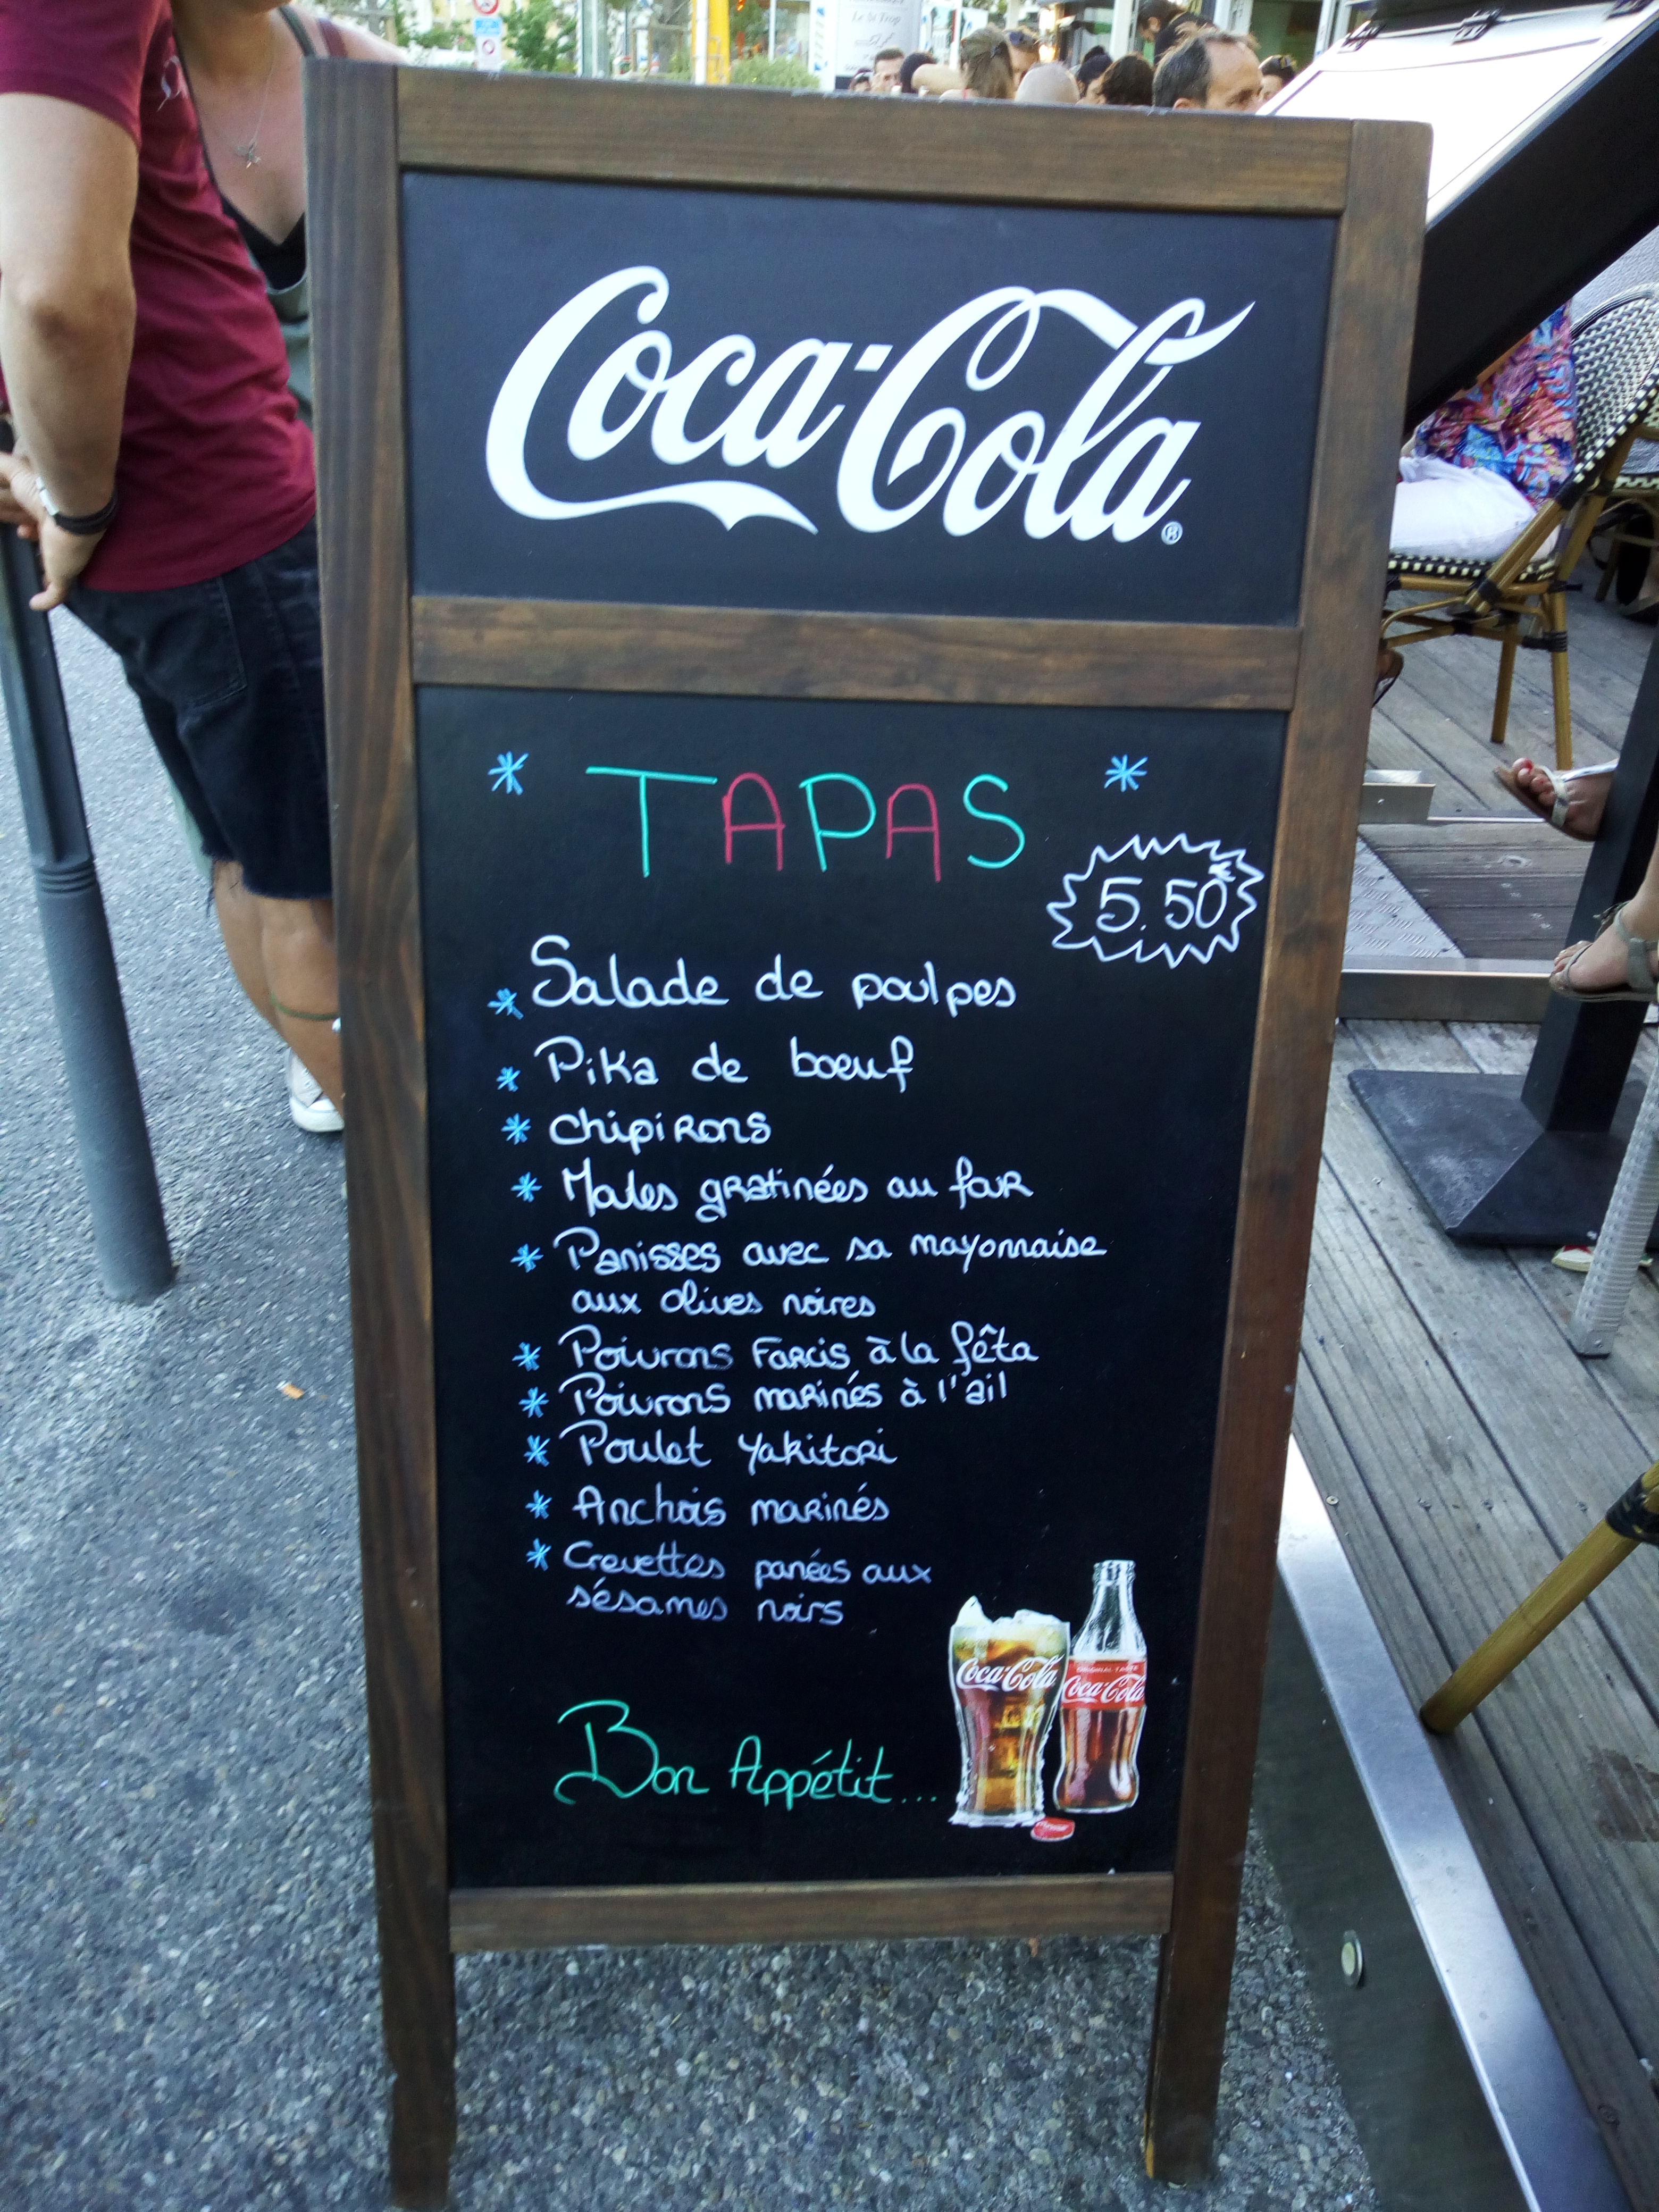 Le St Trop
Coca-Cola®
* TAPAS *
5.50€
* Salade de poulpes
* Pika de boeuf
* Chipirons
* Moules gratinées au four
* Panisses avec sa mayonnaise
aux olives noires
* Poivrons Farcis à la fêta
* Poivrons marinés à l'ail
* Poulet yakitori
* Anchois marinés
* Crevettes panées aux
sésames noirs
Coca-Cola
ORIGINAL TASTE
Coca-Cola
Bon Appétit...